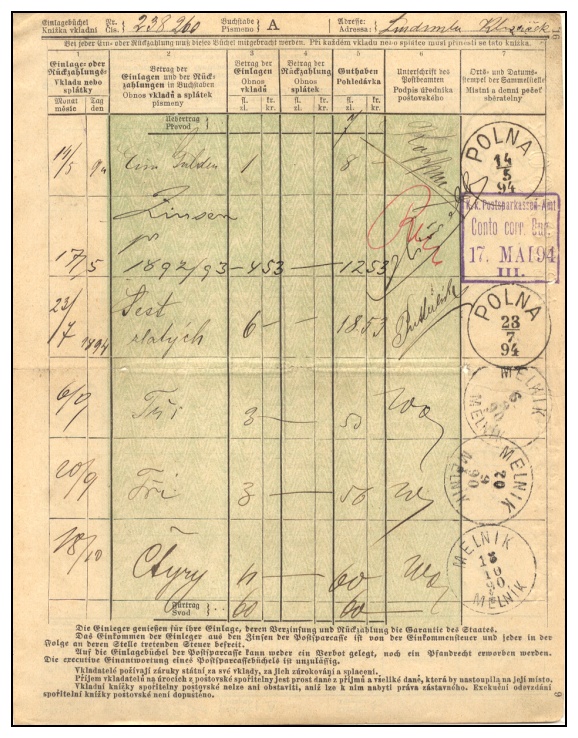 Einlagebüchel Nr. 238260 Buchstabe A Adresse:
Knižka vkladní Čís. Písmeno Adressa:
Bei jeder Ein- oder Rückzahlung muß dieses Büchel mitgebracht werden. Při každém vkladu nebo splátce musí přinesti se tato knížka.
1 2 3 4 5 6 7
Einlage- oder Rückzahlungs- Vkladu nebo splátky
Monat měsíc Tag den
Betrag der Einlagen und der Rückzahlungen in Buchstaben
Obnos vkladů a splátek písmeny
Betrag der Einlagen Obnos vkladů
fl. zl. kr. kr.
Betrag der Rückzahlung Obnos splátek
fl. zl. kr. kr.
Guthaben Pohledávka
fl. zl. kr. kr.
Unterschrift des Postbeamten
Podpis úředníka poštovského
Orts- und Datumstempel der Sammelstelle
Místní a denní pečeť sběratelny
Uebertrag
Převod
14/5 94 Ein Gulden 1 — 8 —
POLNA 14 5 94
Zinsen
pr
17/5 1892/93 — 4 53 — 12 53
K.k. Postsparkassen-Amt
Conto corr. Bur.
17. MAI 94
III.
23/7 1894 Šest
zlatých 6 — — 18.53
POLNA 23 7 94
6/9 Tři 3 — 50
MELNIK MELNIK
20/9 Tři 3 — 50
MELNIK 20 9 90 MELNIK
18/10 Čtyry — 60
MELNIK 18 10 90 MELNIK
Fürtrag
Svod 60 60 —
Die Einleger genießen für ihre Einlage, deren Verzinsung und Rückzahlung die Garantie des Staates.
Das Einkommen der Einleger aus den Zinsen der Postsparcasse ist von der Einkommensteuer und jeder in der
Folge an deren Stelle tretenden Steuer befreit.
Auf die Einlagebüchel der Postsparcasse kann weder ein Verbot gelegt, noch ein Pfandrecht erworben werden.
Die executive Einantwortung eines Postsparcassebüchels ist unzulässig.
Vkladatelé požívají záruky státní za své vklady, za jich zúrokování a splacení.
Příjem vkladatelů na úrocích z poštovské spořitelny jest prost daně z příjmů a všeliké daně, která by nastoupila na její místo.
Vkladní knížky spořitelny poštovské nelze ani obstaviti, aniž lze k nim nabyti práva zástavného. Exekuční odevzdání
spořitelní knížky poštovské není dopuštěno.